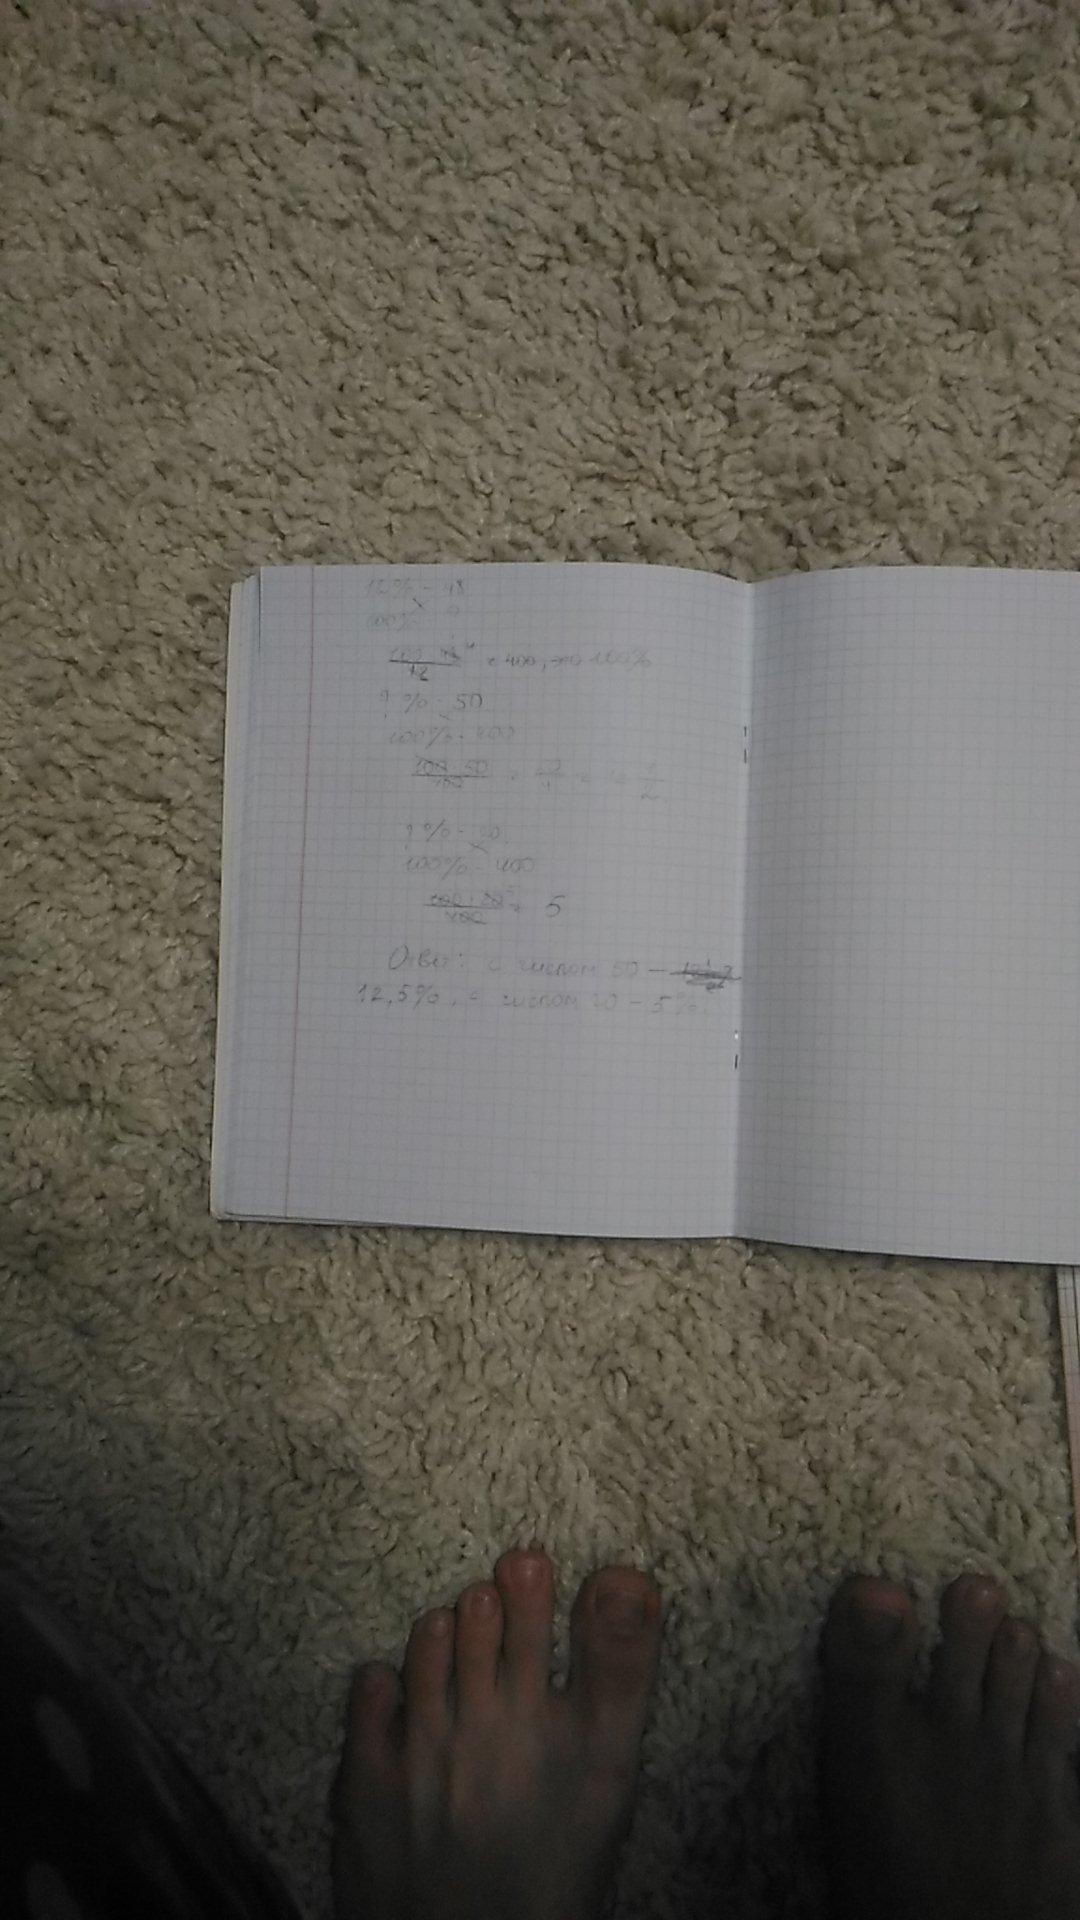 12% - 48
100% - ?
100 · 48 4 / 12 = 400, это 100%
? % - 50
100% - 400
100 · 50 / 400 = 50 / 4 = 12 1/2
? % - 20
100% - 400
100 · 20 5 / 400 = 5
Ответ: с числом 50 -
12,5%, с числом 20 - 5%.